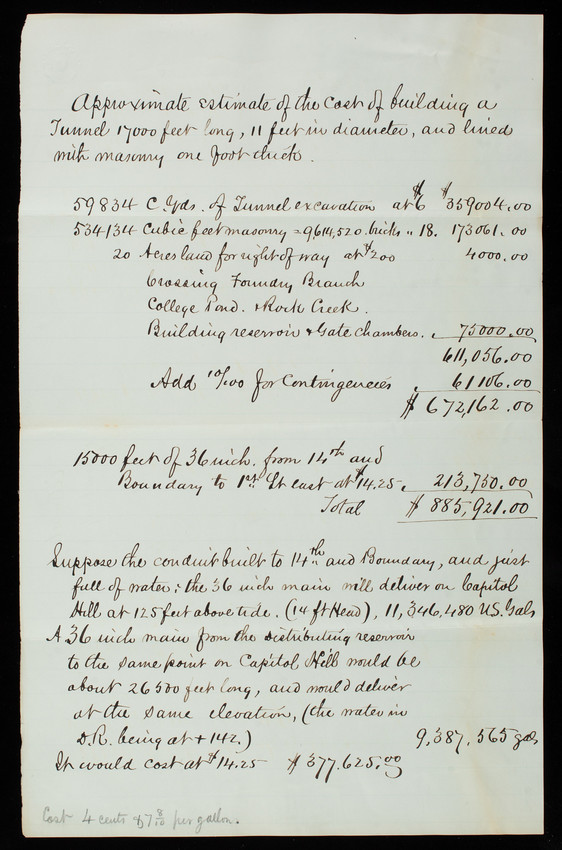 Approximate estimate of the cost of building a
Tunnel 17000 feet long, 11 feet in diameter, and lined
with masonry one foot thick.
59834 C. Yds. of Tunnel excavation at $6 $359004.00
534134 Cubic feet masonry = 9614,520 bricks " 18. 173061.00
20 Acres land for right of way at $200 4000.00
Crossing Foundry Branch
College Pond. & Rock Creek.
Building reservoir & Gate Chambers. . 75000.00
611,056.00
Add 10/00 for Contingencies . 61106.00
$ 672,162.00
15000 feet of 36 inch. from 14th and
Boundary to 1st St east at $14.25. 213,750.00
Total $ 885,921.00
Suppose the conduit built to 14th and Boundary, and just
full of water; the 36 inch main will deliver on Capitol
Hill at 125 feet above tide. (14 ft Head), 11,346,480 U.S. Gals
A 36 inch main from the distributing reservoir
to the same point on Capitol Hill would be
about 26500 feet long, and would deliver
at the same elevation, (the water in
D.R. being at + 142.) 9,387,565 gals
It would cost at $14.25 $377.625.00
Cost 4 cents & 7 8/10 per gallon.